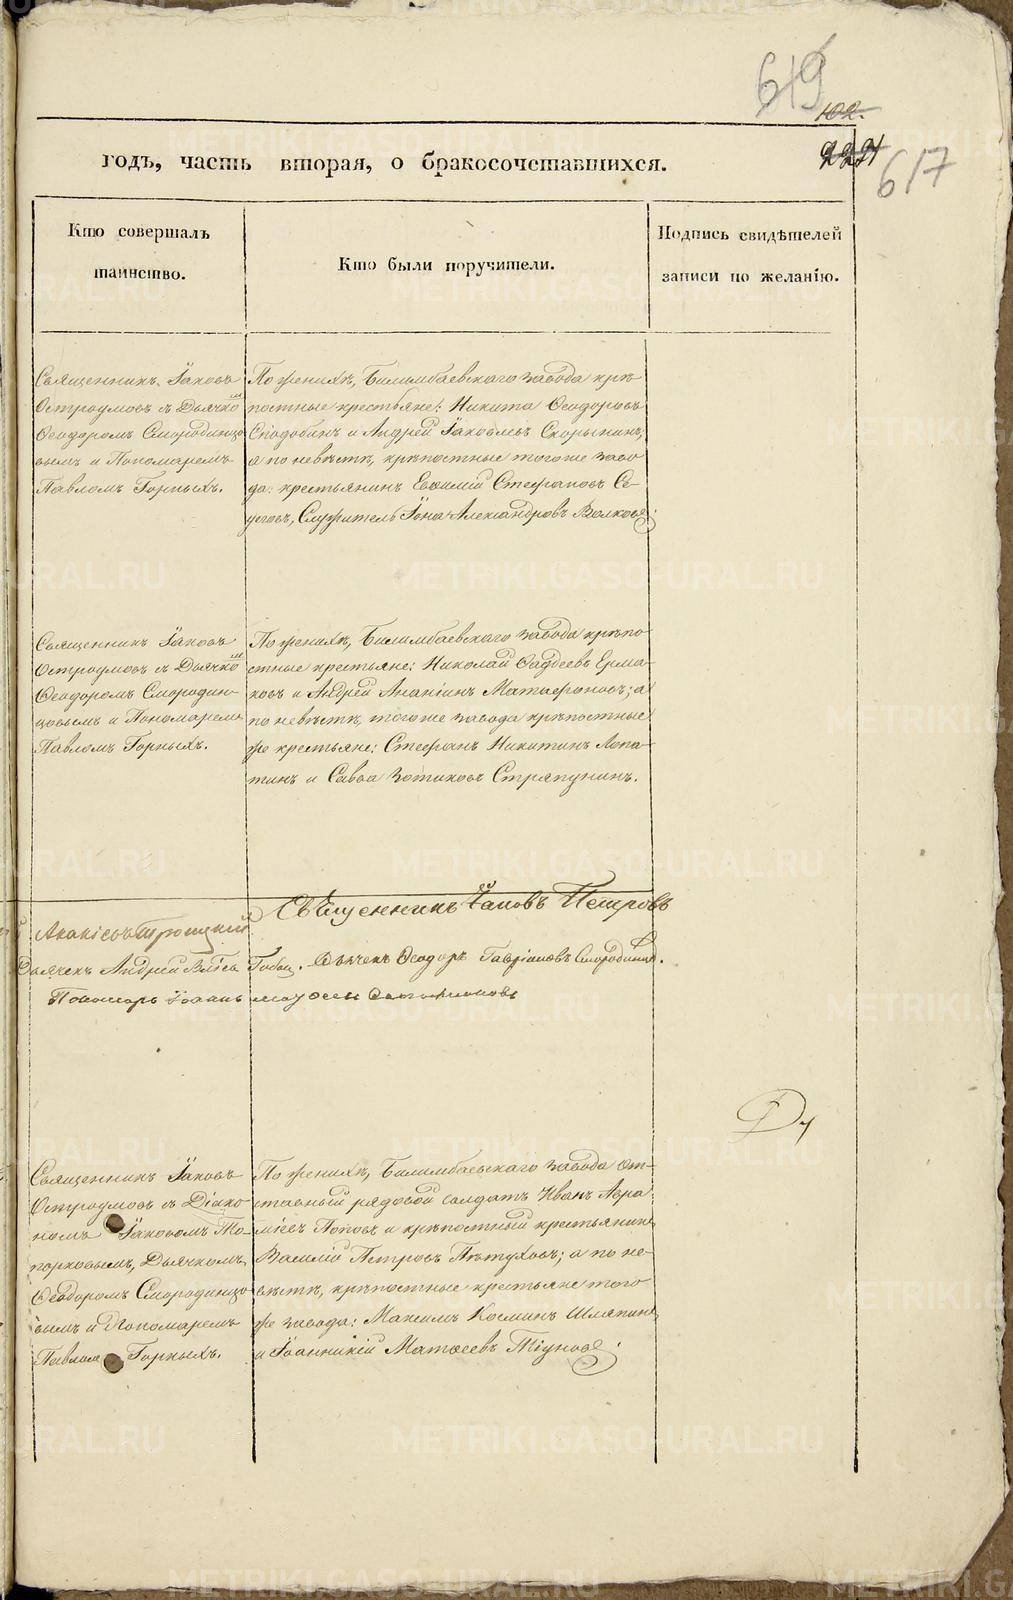 619
102.
годъ, часть вторая, о бракосочетавшихся.
617
Кто совершалъ
таинство.
Кто были поручители.
Подпись свидѣтелей
записи по желанію.
Священникъ Іаковъ
Остроумовъ съ Дьячко
Ѳеодоромъ Смородинцо
вымъ и Пономаремъ
Павломъ Горныхъ.
По женихѣ, Билимбаевскаго завода крѣ
постные крестьяне: Никита Ѳеодоровъ
Сподобинъ и Андрей Іаковлевъ Скорынинъ,
а по невѣстѣ, крѣпостные тогоже заво
да: крестьянинъ Евѳимій Стефановъ Се-
уговъ, Служитель Іона Александровъ Волковъ.
Священникъ Іаковъ
Остроумовъ съ Дьячко
Ѳеодоромъ Смородин-
цовымъ и Пономаремъ
Павломъ Горныхъ.
По женихѣ, Билимбаевскаго завода крѣпо
стные крестьяне: Николай Ѳаддеевъ Ерма-
ковъ и Андрей Ананіинъ Матафоновъ; а
по невѣстѣ, тогоже завода крѣпостные
же крестьяне: Стефанъ Никитинъ Лопа-
тинъ и Савва Зотиковъ Стряпунинъ.
Священникъ Іаковъ Петровъ
Троицкій
Дьячекъ Андрей
Дьячекъ Ѳеодоръ Гавріиловъ Смородинцо.
Пономарь Іоаннъ
Священникъ Іаковъ
Остроумовъ съ Діако
номъ Іаковомъ То-
порковымъ, Дьячкомъ
Ѳеодоромъ Смородинцо
вымъ и Пономаремъ
Павлом Горныхъ.
По женихѣ, Билимбаевскаго завода от-
ставный рядовой солдатъ Иванъ Авра
міевъ Поповъ и крѣпостный крестьянинъ
Василій Петровъ Пѣтуховъ; а по не-
вѣстѣ, крѣпостные крестьяне того
же завода: Максимъ Косминъ Шляпинъ
и Іоанникій Матѳеевъ Тіуновъ.
METRIKI.GASO-URAL.RU